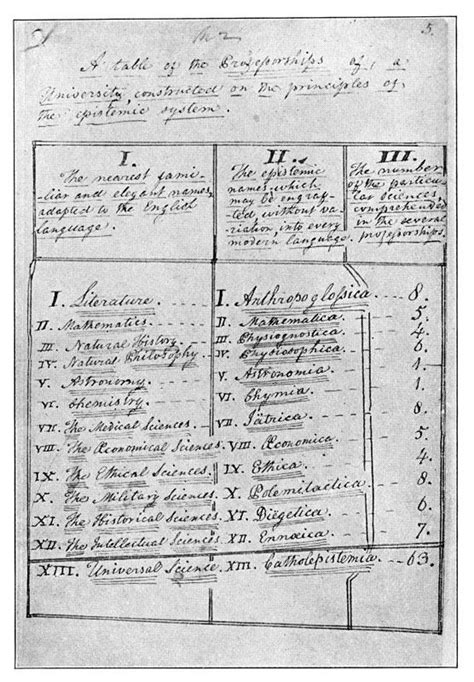 5.
A table of the Professorships of a
University constructed on the principles of
the epistemic system.
I.
The nearest fami-
liar and elegant names,
adapted to the English
language.
II.
The epistemic
names, which
may be engraf-
ted without va-
riation, into every
modern language.
III.
The number
of the particu-
lar Sciences
comprehended
in the several
professorships.
I. Literature. I. Anthropoglossica. 8.
II. Mathematics. II. Mathematica. 5.
III. Natural History. III. Physiognostica. 4.
IV. Natural Philosophy. IV. Physiosophica. 6.
V. Astronomy. V. Astronomia. 1.
VI. Chemistry. VI. Chymia. 1.
VII. The Medical Sciences. VII. Iätrica. 8.
VIII. The Œconomical Sciences. VIII. Œconomica. 5.
IX. The Ethical Sciences. IX. Ethica. 4.
X. The Military Sciences. X. Polemitactica. 8.
XI. The Historical Sciences. XI. Diëgetica. 6.
XII. The Intellectual Sciences. XII. Ennœica. 7.
XIII. Universal Science. XIII. Catholepistemia. 63.